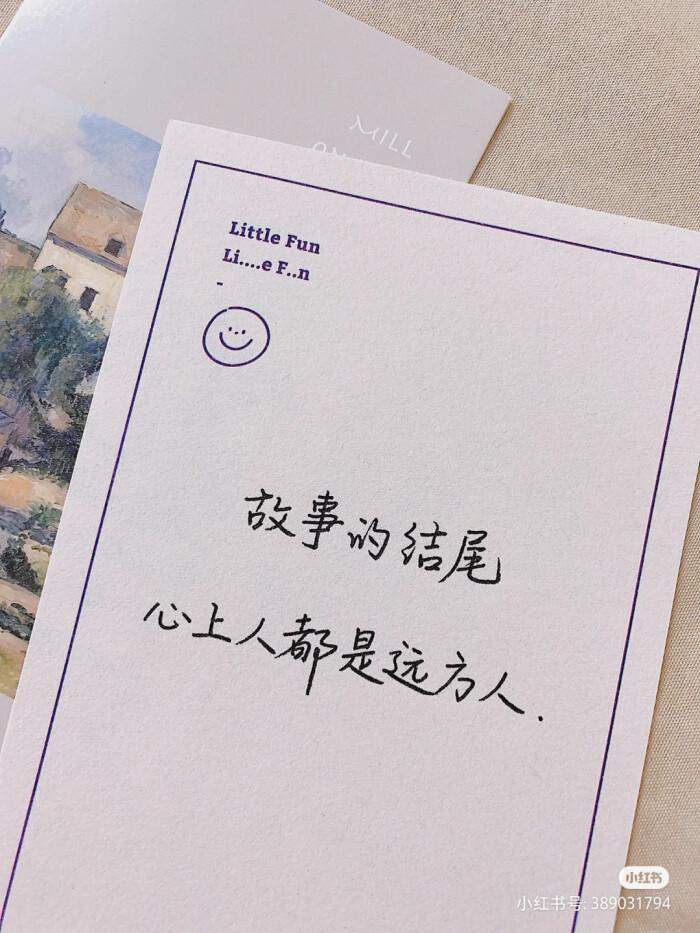 MILL
Little Fun
Li....e F..n
-
故事的结尾
心上人都是远方人.
小红书
小红书号: 389031794